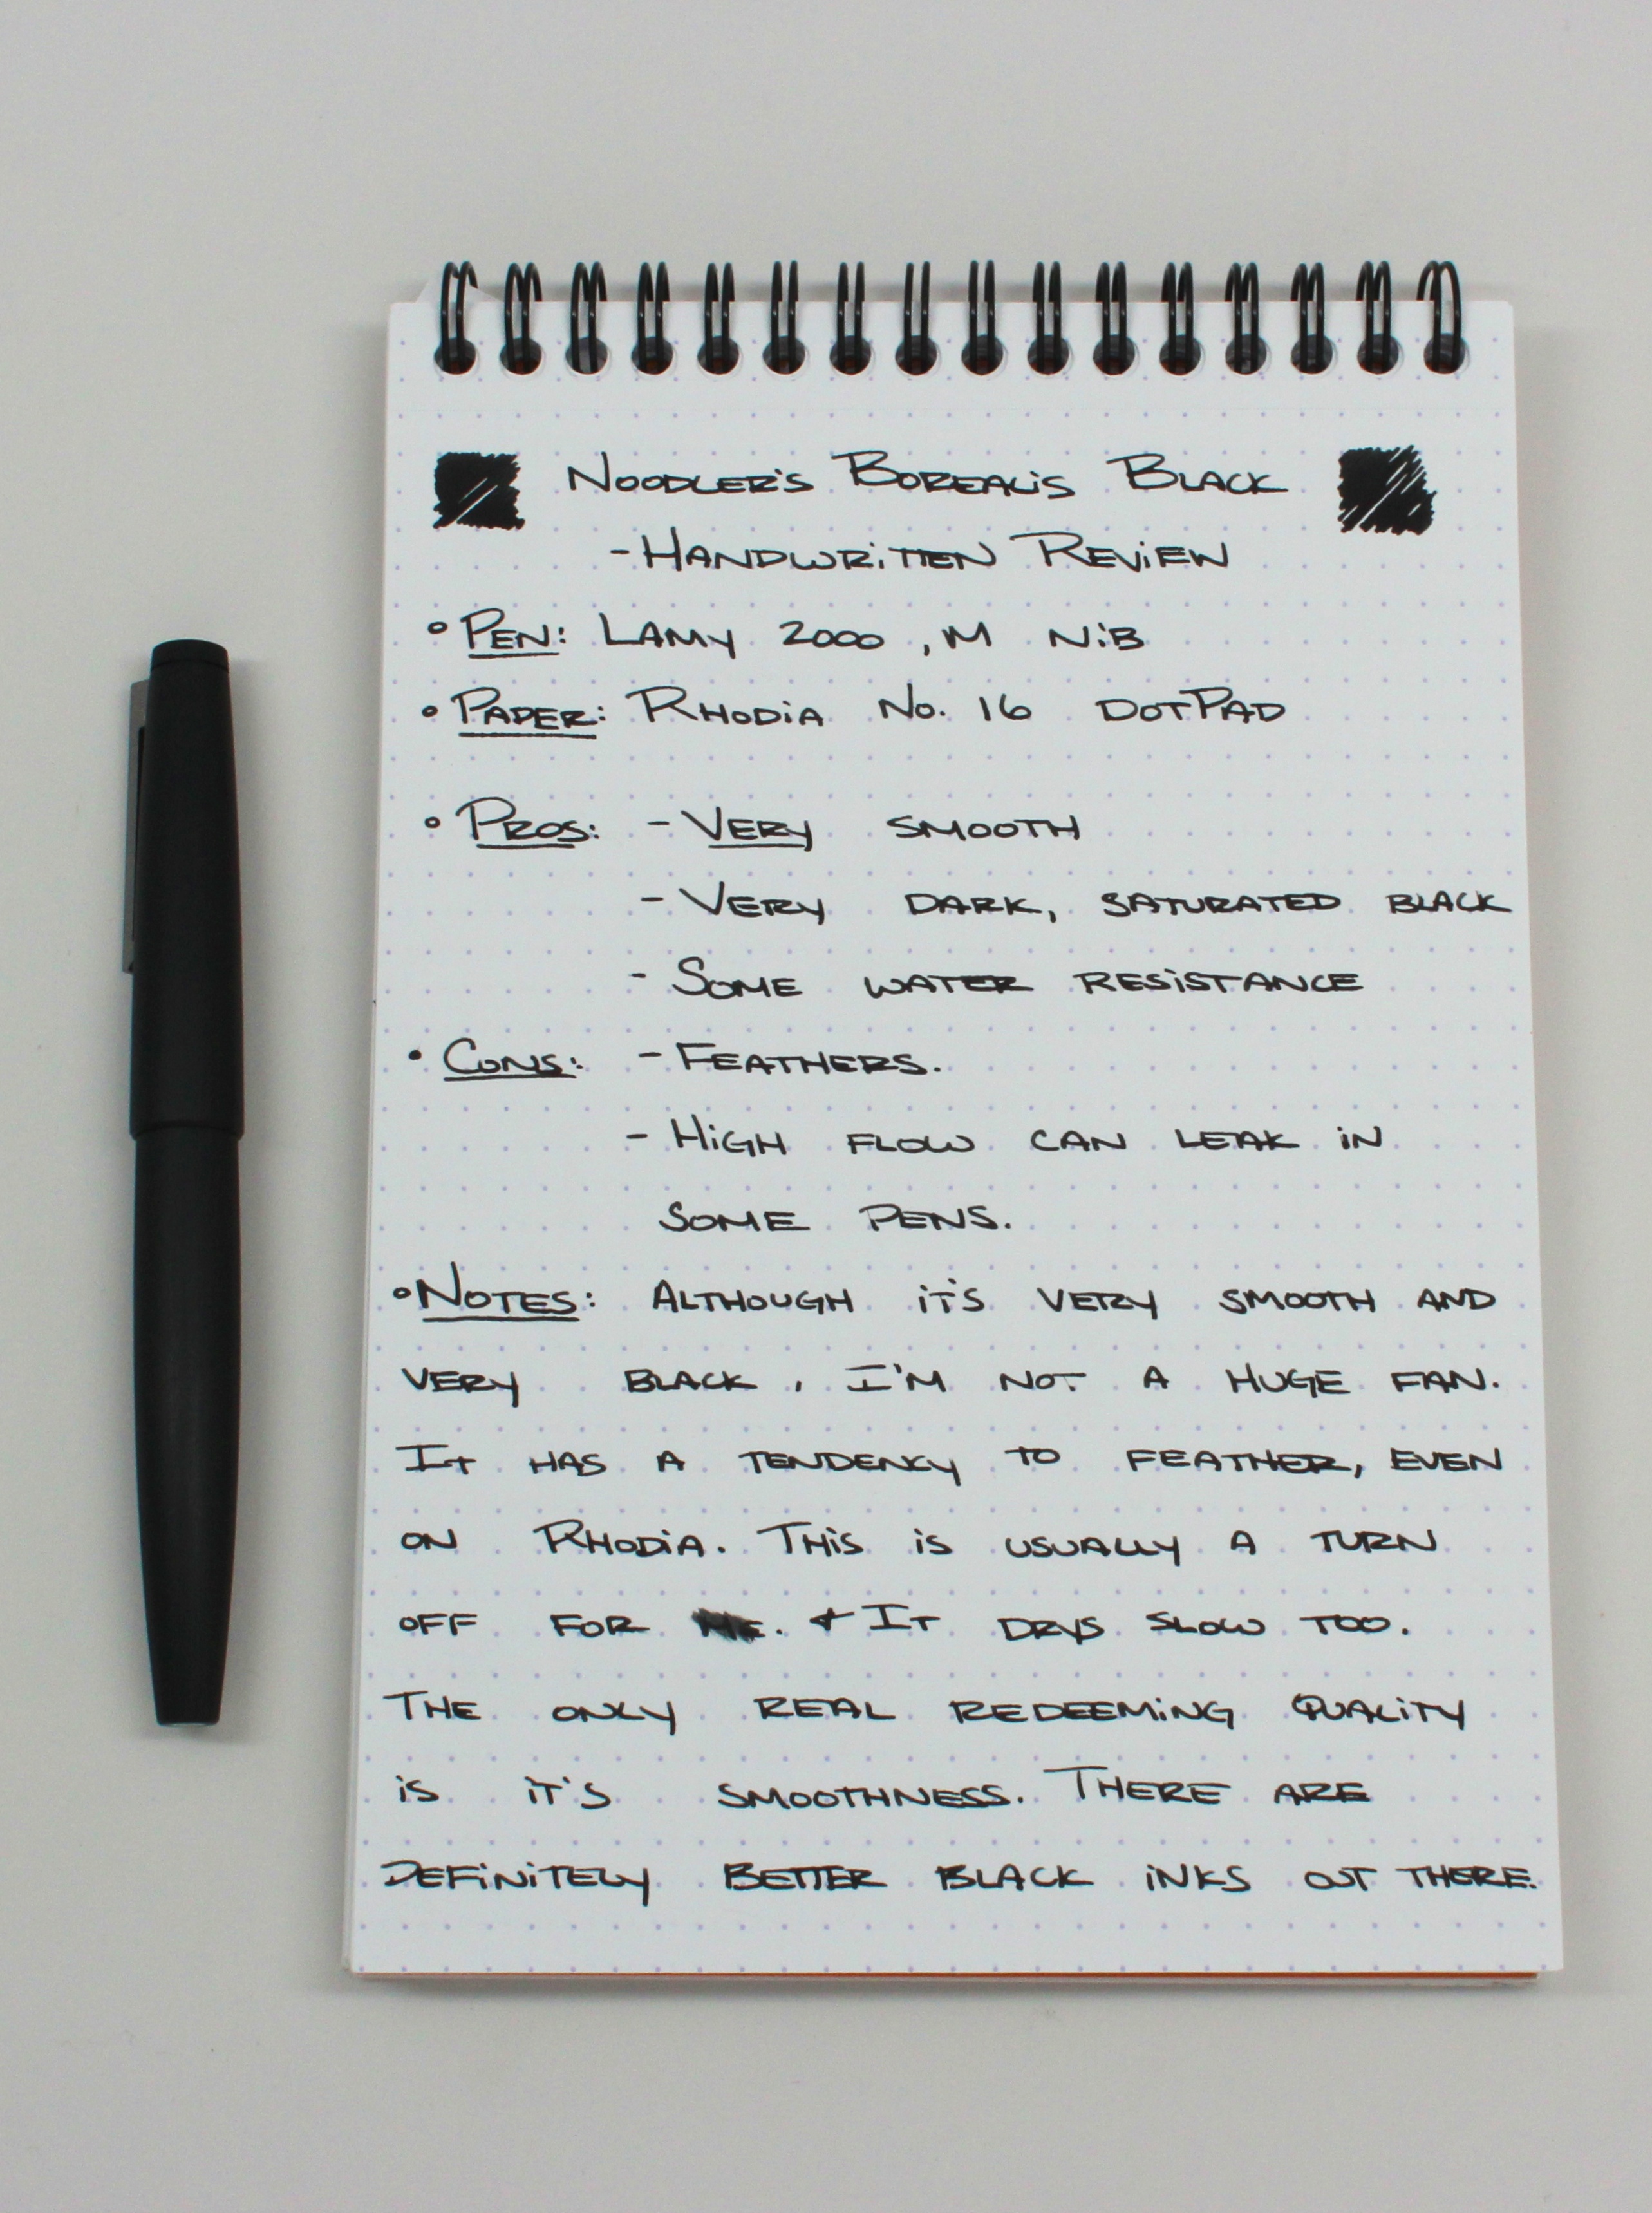 Noodler's Borealis Black
- Handwritten Review
• Pen: Lamy 2000, M Nib
• Paper: Rhodia No. 16 DotPad
• Pros: - Very smooth
- Very dark, saturated black
- Some water resistance
• Cons: - Feathers.
- High flow can leak in
some pens.
• Notes: Although it's very smooth and
very black, I'm not a huge fan.
It has a tendency to feather, even
on Rhodia. This is usually a turn
off for me. + It drys slow too.
The only real redeeming quality
is it's smoothness. There are
definitely better black inks out there.